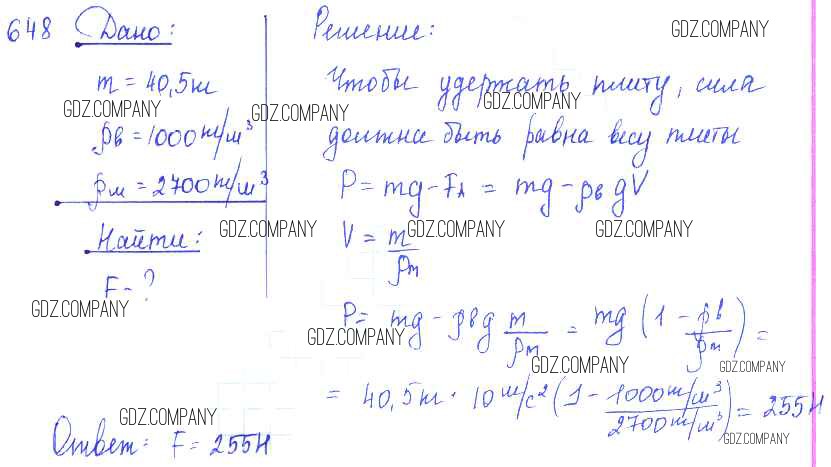 648 Дано:
m = 40,5 кг
ρв = 1000 кг/м³
ρм = 2700 кг/м³
Найти:
F - ?
Решение:
Чтобы удержать плиту, сила
должна быть равна весу плиты
P = mg - Fл = mg - ρв gV
V = m/ρm
P = mg - ρв g m/ρm = mg (1 - ρв/ρm) =
= 40,5 кг · 10 м/с² (1 - 1000 кг/м³ / 2700 кг/м³) = 255 Н
Ответ: F = 255 Н
GDZ.COMPANY
GDZ.COMPANY
GDZ.COMPANY
GDZ.COMPANY
GDZ.COMPANY
GDZ.COMPANY
GDZ.COMPANY
GDZ.COMPANY
GDZ.COMPANY
GDZ.COMPANY
GDZ.COMPANY
GDZ.COMPANY
GDZ.COMPANY